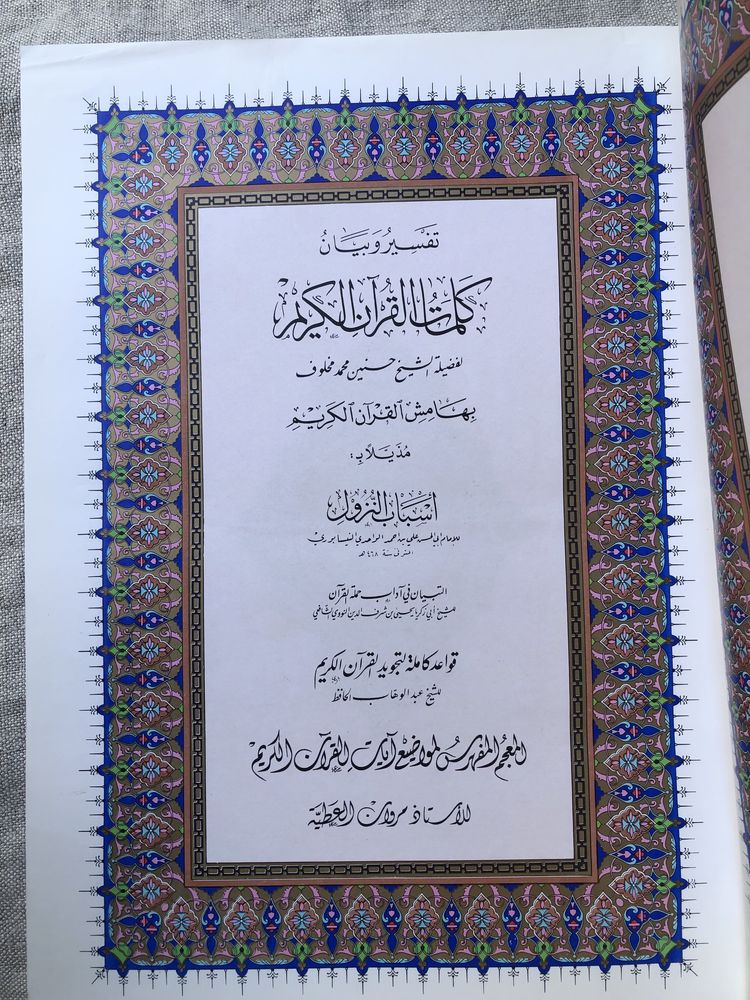 تَفسِيْرُ وَبيَانُ
كلمات القرآن الكريم
لفضيلة الشيخ حسنين محمد مخلوف
بِهَامِش القرآن الكريم
مُذَيَّلاً بِـ :
أسباب النزول
للإمام أبي الحسن علي بن أحمد الواحدي النيسابوري
المتوفى سنة ٤٦٨ هـ
التبيان في آداب حملة القرآن
للشيخ أبي زكريا يحيى بن شرف الدين النووي الشافعي
قواعد كاملة لتجويد القرآن الكريم
للشيخ عبد الوهاب الحافظ
المعجم المفهرس لمواضيع آيات القرآن الكريم
للأستاذ مروان العطية